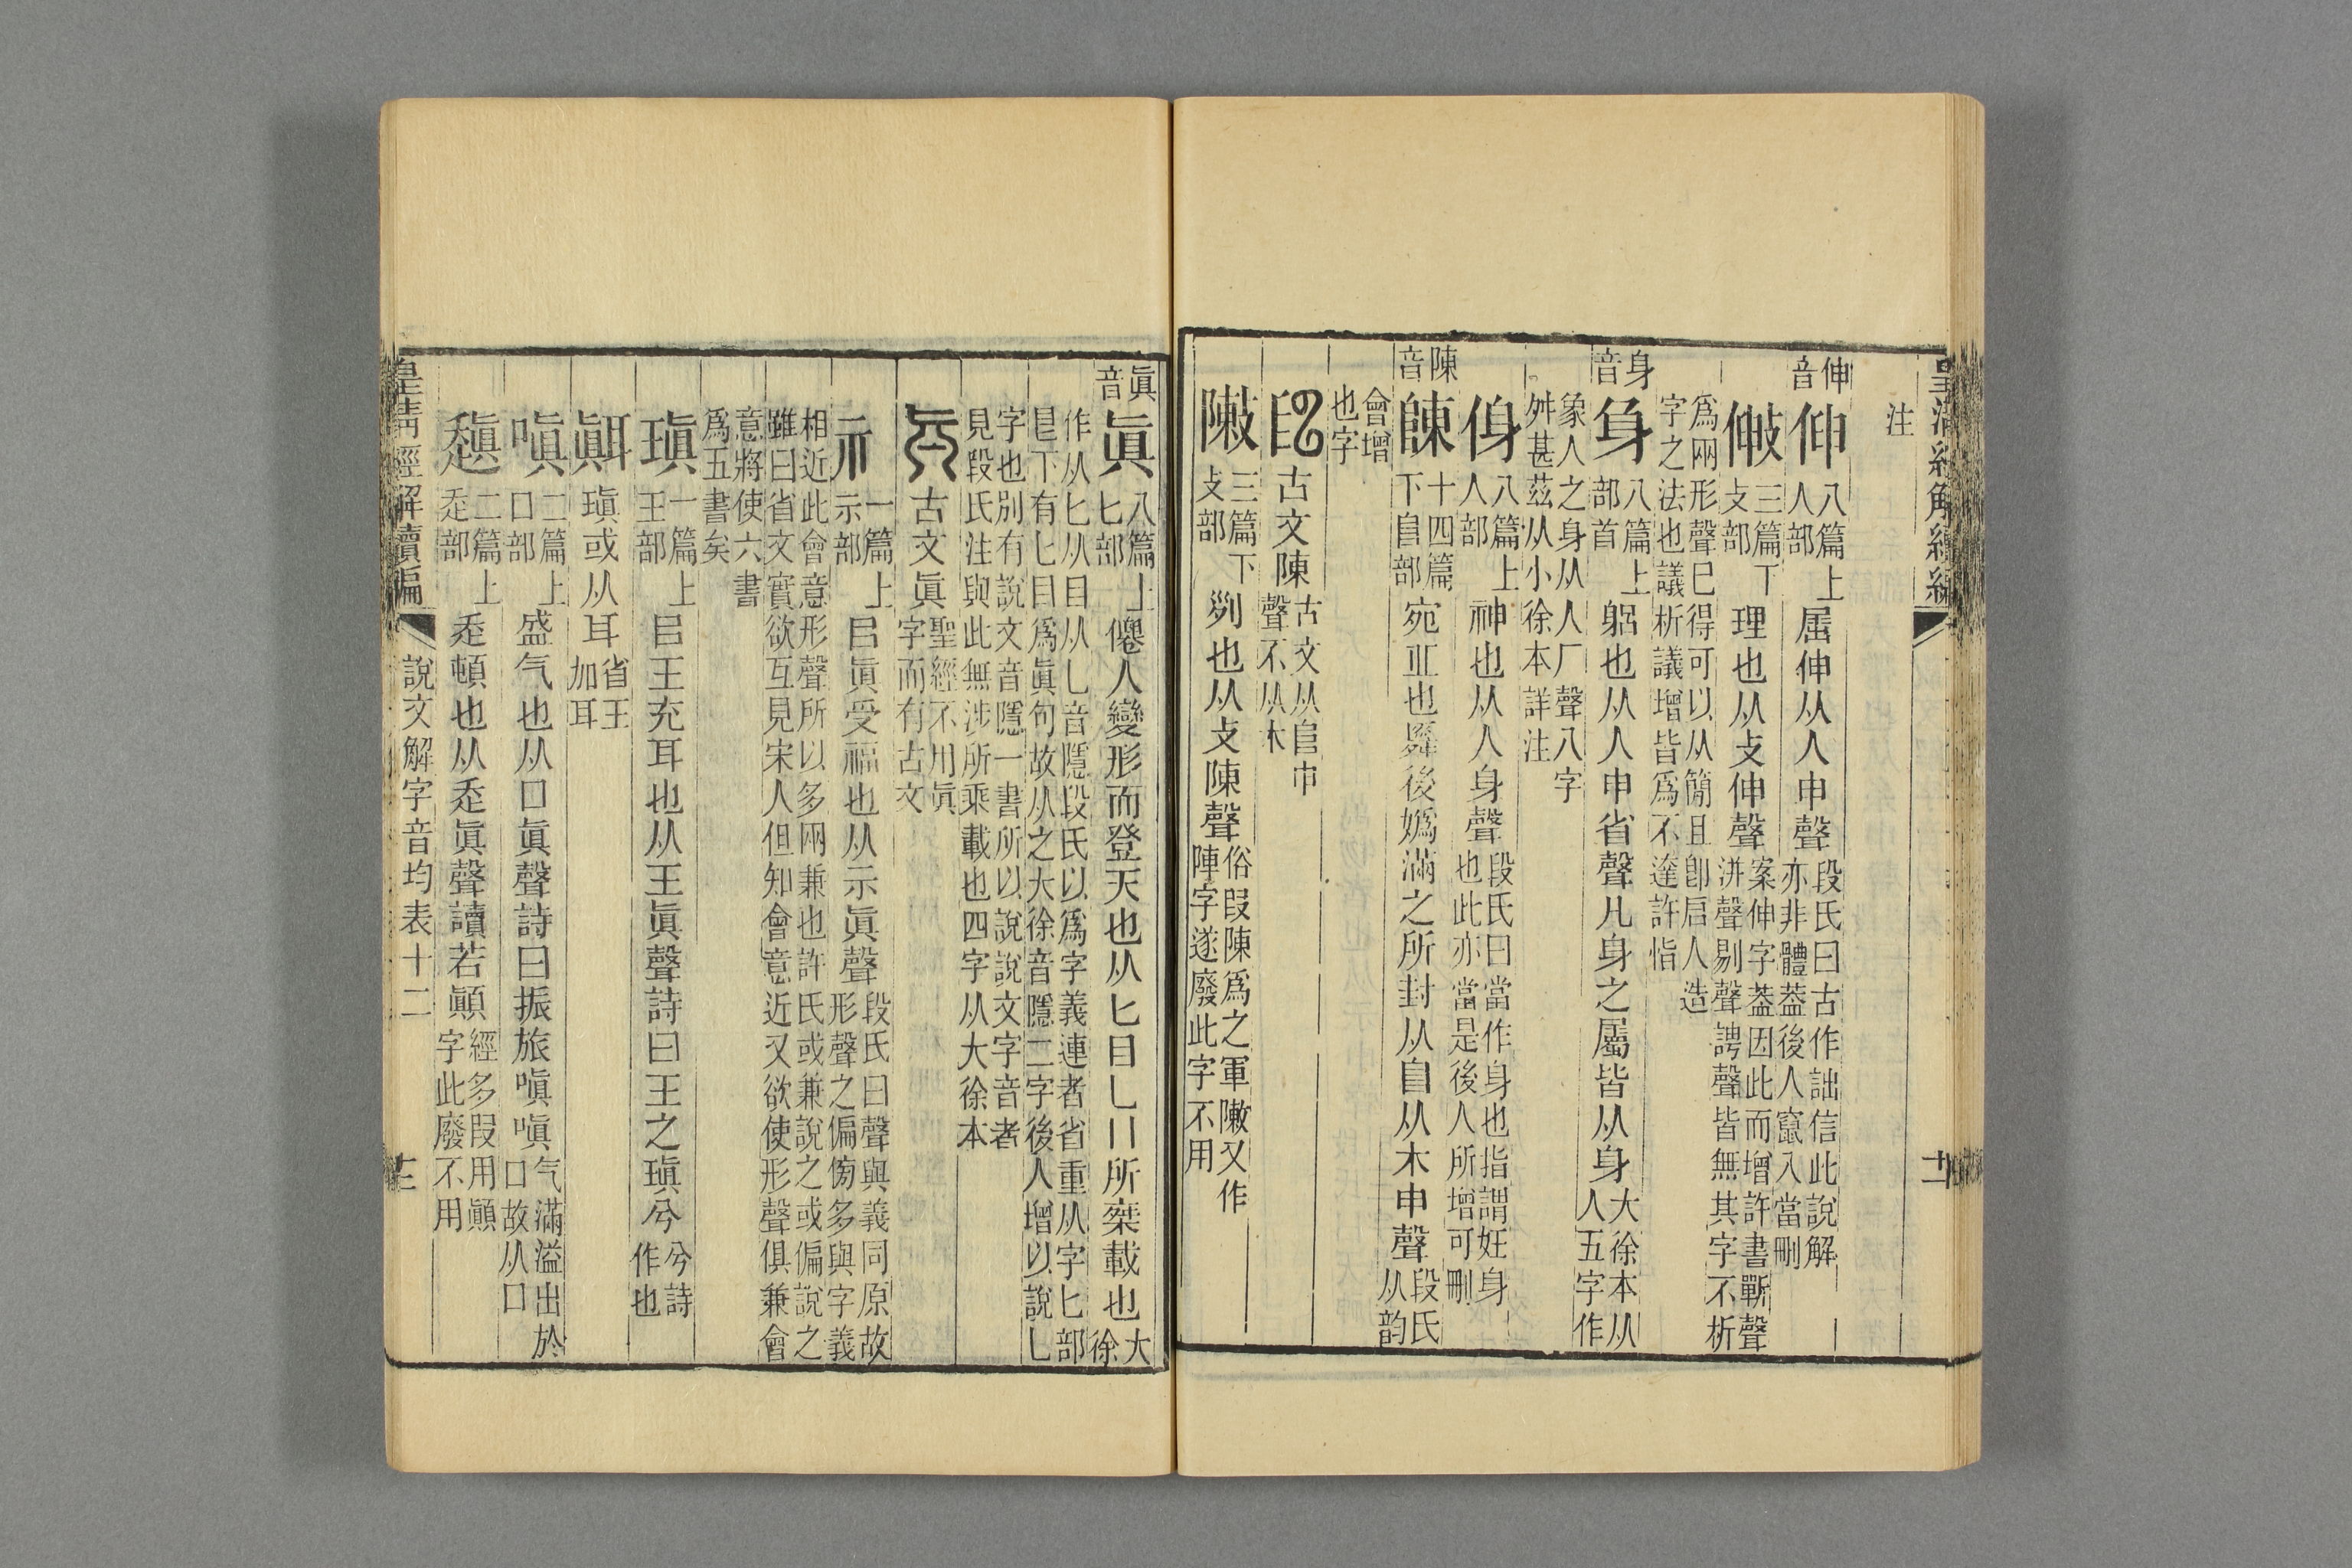 皇清經解續編
十二
注
伸音
伸 八篇上人部 屈伸从人申聲 段氏曰古作詘信此說解亦非體葢後人竄入當刪
㑱 三篇下攴部 理也从攴伸聲 案伸字葢因此而增許書斷聲洴聲剔聲謣聲皆無其字不析
爲兩形聲巳得可以从簡且卽启人造字之法也議析議增皆爲不達許恉
身音
身 八篇上部首 躳也从人申省聲凡身之屬皆从身 大徐本从人五字作
象人之身从人厂聲八字舛甚茲从小徐本詳注
㑗 八篇上人部 神也从人身聲 段氏曰當作身也指謂妊身也此亦當是後人所增可刪
陳音
陳 十四篇下𨸏部 宛丘也舜後嬀滿之所封从𨸏从木申聲 段氏从韵
會增也字
古文陳 古文从𨸏申聲不从木
敶 三篇下攴部 𠛱也从攴陳聲 俗叚陳爲之軍敶又作陣字遂廢此字不用
眞音
眞 八篇上匕部 僊人變形而登天也从匕目乚八所椉載也 大徐
作从匕从目从乚音隱段氏以爲字義連者省重从字匕部𠤎下有匕目爲眞句故从之大徐音隱二字後人增以說乚
字也別有說文音隱一書所以說說文字音者見段氏注與此無涉所乘載也四字从大徐本
古文眞 聖經不用眞字而有古文
禛 一篇上示部 㠯眞受福也从示眞聲 段氏曰聲與義同原故形聲之偏㑂多與字義
相近此會意形聲所以多兩兼也許氏或兼說之或偏說之雖曰省文實欲互見宋人但知會意近又欲使形聲俱兼會
意將使六書爲五書矣
瑱 一篇上王部 㠯王充耳也从王眞聲詩曰王之瑱兮 兮詩作也
䫬 瑱或从耳 省王加耳
嗔 二篇上口部 盛气也从口眞聲詩曰振旅嗔嗔 气滿溢出於口故从口
趚 二篇上走部 走頓也从走眞聲讀若顚 經多叚用顚字此廢不用
皇清經解續編
說文解字音均表十二
十三